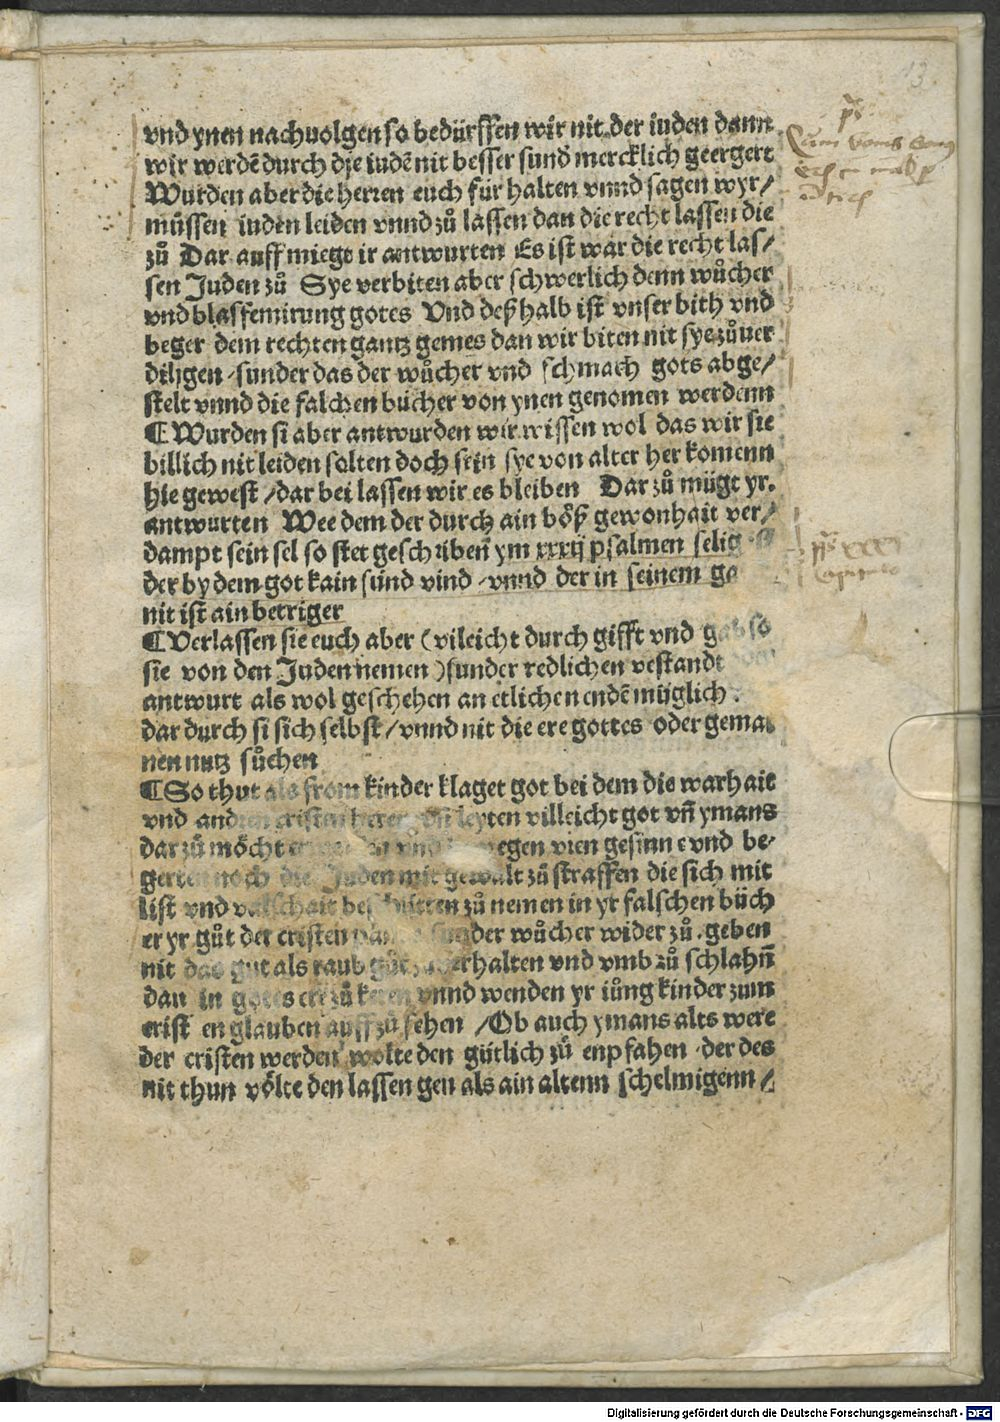 13
vnd ynen nachuolgen so bedürffen wir nit der iuden dann
wir werdẽ durch die iudẽ nit besser sund mercklich geergert
Wurden aber die herren euch für halten vnnd sagen wyr/
müssen iuden leiden vnnd zů lassen dan die recht lassen die
zů Dar auff miegt ir antwurten Es ist war die recht las/
sen Juden zů Sye verbiten aber schwerlich denn wůcher
vnd blassemirung gotes Vnd deßhalb ist vnser bith vnd
beger dem rechten gantz gemes dan wir biten nit sye zůuer
dilgen sunder das der wůcher vnd schmach gots abge/
stelt vnnd die falchen bücher von ynen genomen werdenn
¶ Wurden si aber antwurden wir wissen wol das wir sie
billich nit leiden solten doch sein sye von alter her komenn
hie gewest /dar bei lassen wir es bleiben Dar zů mügt yr.
antwurten Wee dem der durch ain bőß gewonhait ver/
dampt sein sel so stet geschriben ym xxxij psalmen selig
der by dem got kain sünd vind vnnd der in seinem
nit ist ain betriger
¶ Verlassen sie euch aber (vileicht durch gifft vnd gab so
sie von den Juden nemen) sunder redlichen vestandt
antwurt als wol geschehen an etlichen endẽ müglich
dar durch si sich selbst/vnnd nit die ere gottes oder gemai
nen nutz sůchen
¶ So thut als from kinder klaget got bei dem die warhait
vnd andern cristen leyten villeicht got vñ ymans
dar zů möcht gesinne vnd be-
gerten noch die Juden mit gewalt zů straffen die sich mit
list vnd zů nemen in yr falschen büch
er yr gůt der cristen der wůcher wider zů geben
nit das gut als raub gůt erhalten vnd vmb zů schlahñ
dan in gottes ere zů keren vnnd wenden yr iůng kinder zum
crist en glauben auff zů sehen /Ob auch ymans alts were
der cristen werden wolte den gütlich zů enpfahen der des
nit thun vőlte den lassen gen als ain altenn schelmigenn/
Digitalisierung gefördert durch die Deutsche Forschungsgemeinschaft - DFG